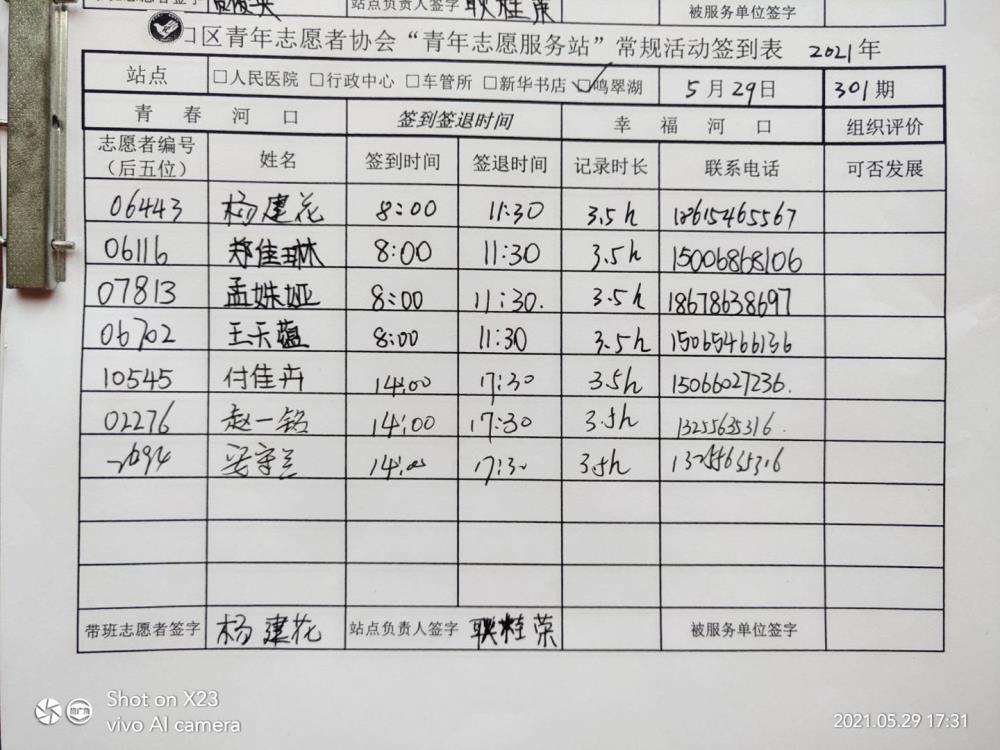 站点负责人签字 耿桂荣 被服务单位签字
口区青年志愿者协会“青年志愿服务站”常规活动签到表 2021年
站点 □人民医院 □行政中心 □车管所 □新华书店 □鸣翠湖 5月29日 301期
青春河口 签到签退时间 幸福河口 组织评价
志愿者编号（后五位） 姓名 签到时间 签退时间 记录时长 联系电话 可否发展
06443 杨建花 8:00 11:30 3.5h 12615465567
06116 郑佳琳 8:00 11:30 3.5h 15006868106
07813 孟姝娅 8:00 11:30. 3.5h 18678638697
06702 王天蕴 8:00 11:30 3.5h 15065466136
10545 付佳卉 14:00 17:30 3.5h 15066027236.
02276 赵一铭 14:00 17:30 3.5h 13255635316.
14:00 17:30 3.5h 13255635316
带班志愿者签字 杨建花 站点负责人签字 耿桂荣 被服务单位签字
Shot on X23
vivo AI camera
2021.05.29 17:31